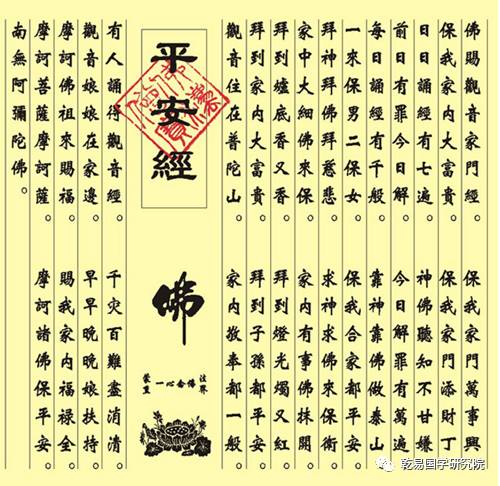 佛賜觀音家門經。保我家門萬事興。
保我家內大富貴。保我家門添財丁。
日日誦經有七遍。神佛聽知不甘嫌。
前日有罪今日解。今日解罪有萬遍。
每日誦經有千般。靠神靠佛做泰山。
一來保男二保女。保我合家都平安。
拜神拜佛佛慈悲。求神求佛來保衛。
家中大細佛來保。家內有事佛抹開。
拜到爐底香又香。拜到燈光燭又紅。
拜到家內大富貴。拜到子孫都平安。
觀音住在普陀山。家內敬奉都一般。
平安經
佛
一心念佛
有人誦得觀音經。千災百難盡消清。
觀音娘娘在家邊。早早晚晚娘扶持。
摩訶佛祖來賜福。賜我家內福祿全。
摩訶菩薩摩訶薩。摩訶諸佛保平安。
南無阿彌陀佛。
乾易国学研究院